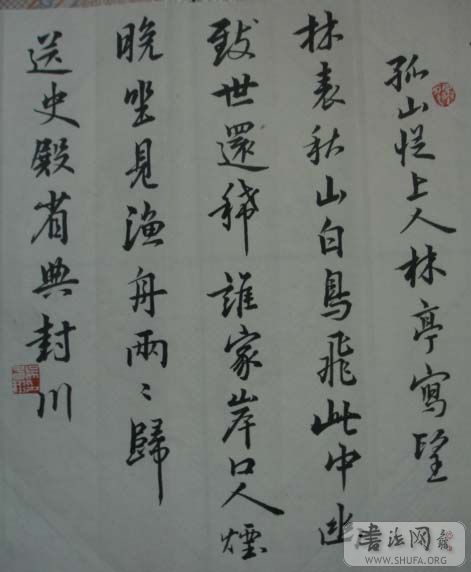 孤山從上人林亭寫望
林表秋山白鳥飛此中幽
致世還稀誰家岸口人煙
晚坐見漁舟兩〻歸
送史殿省典封川
書法网
WWW.SHUFA.ORG